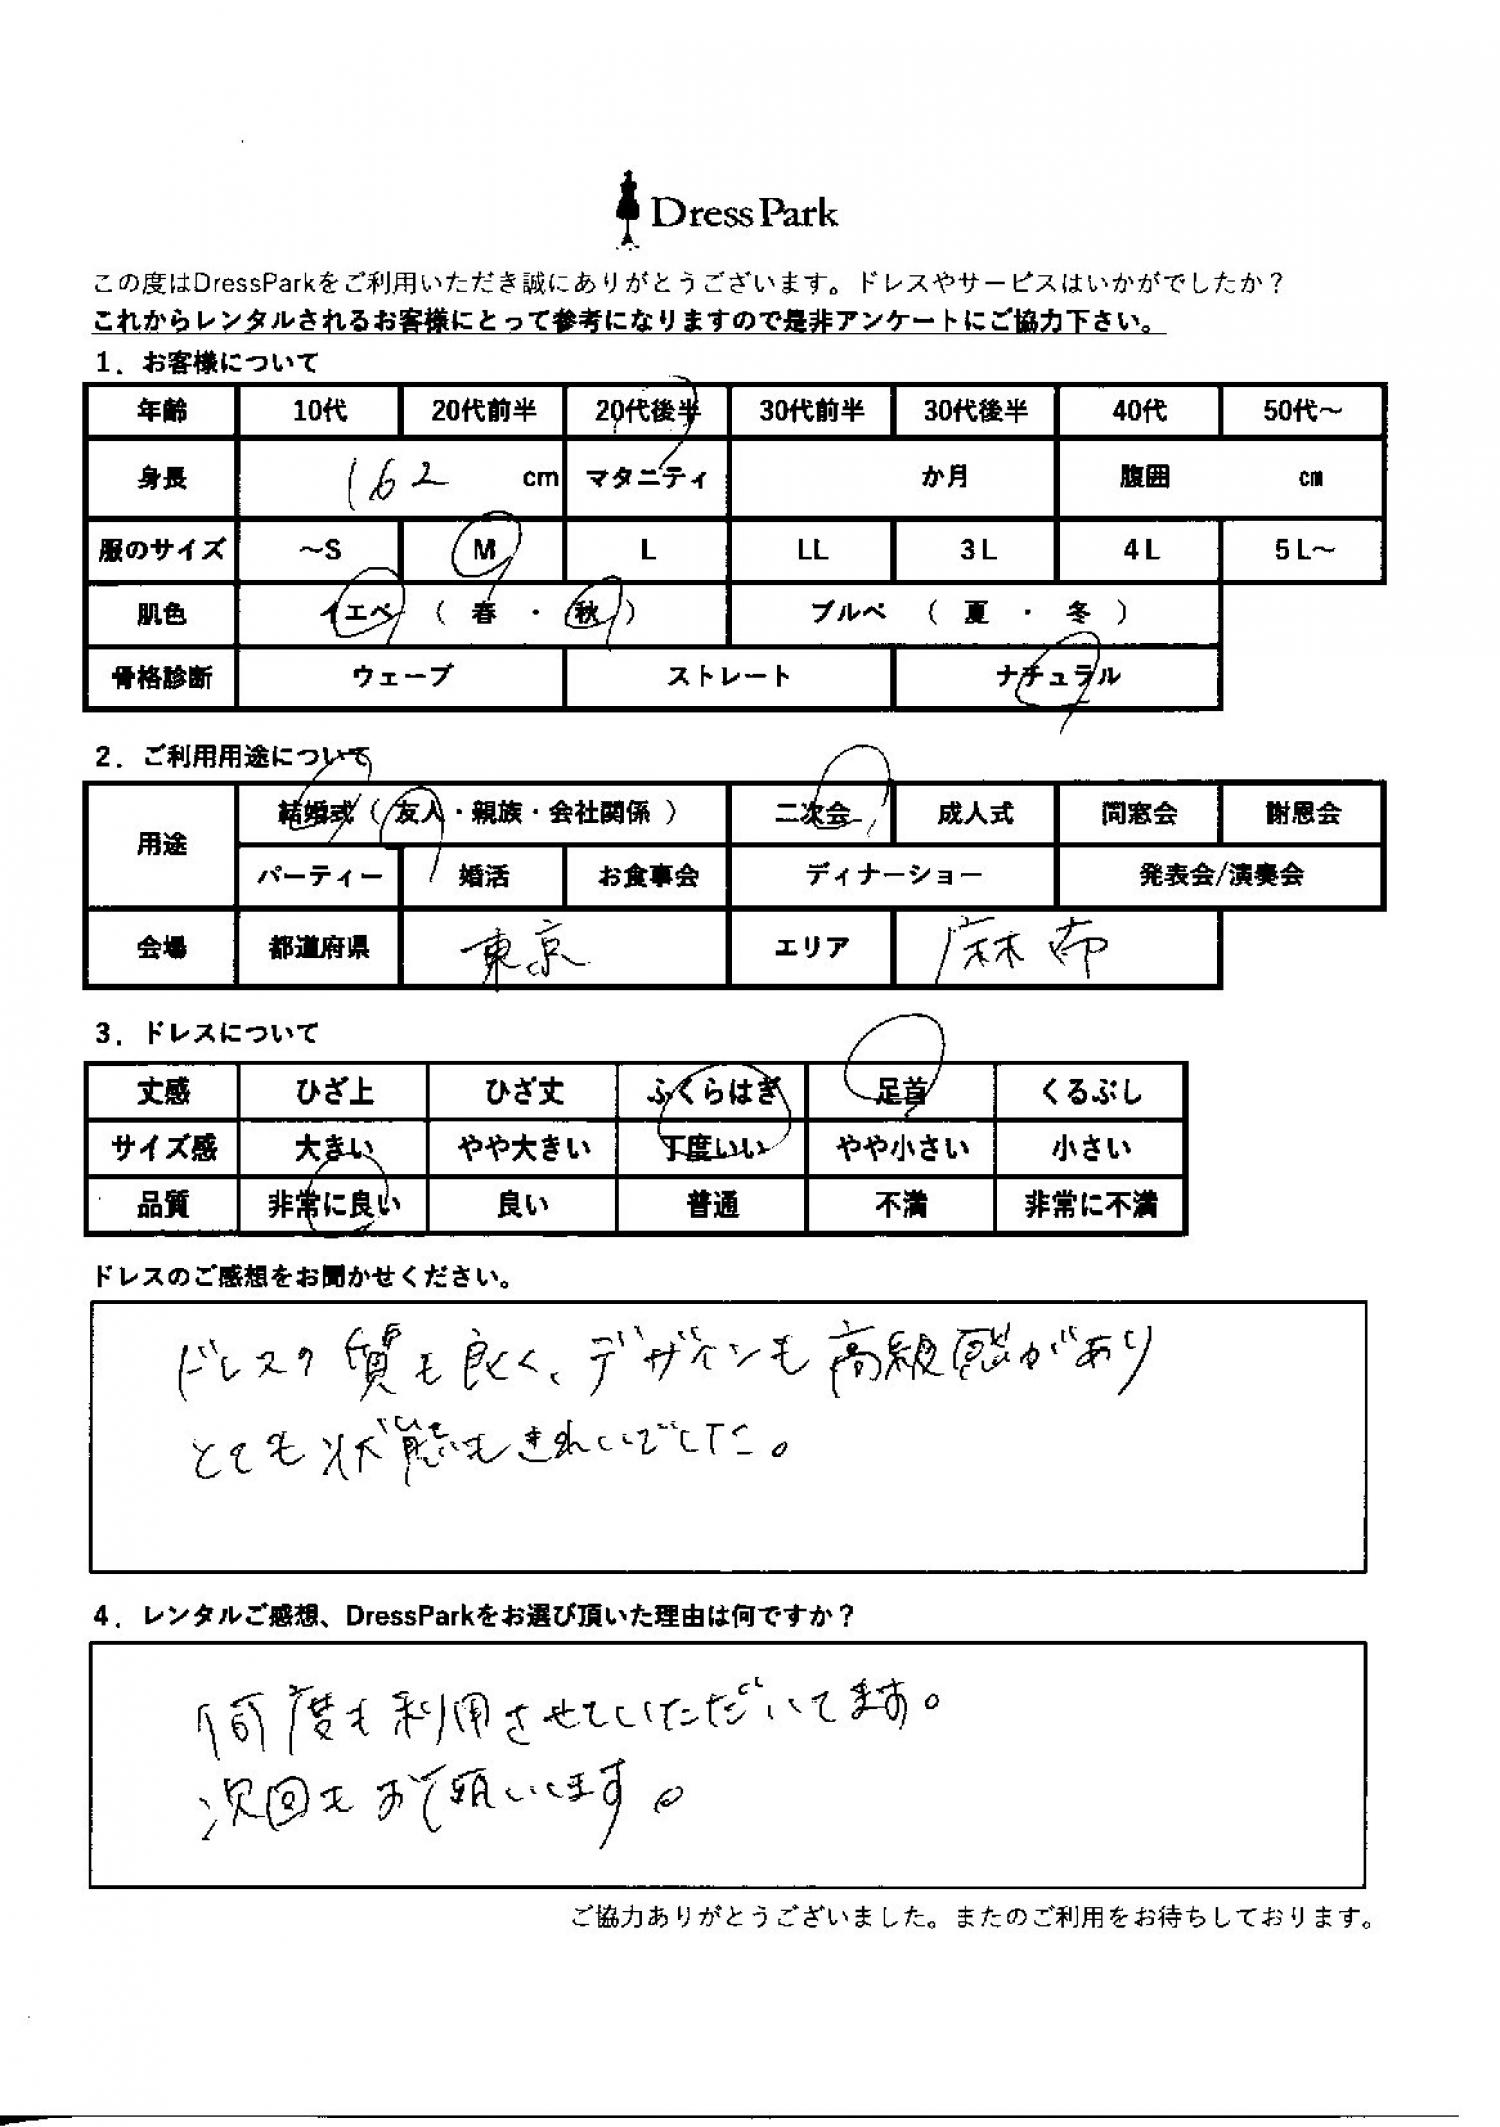 DressPark
この度はDressParkをご利用いただき誠にありがとうございます。ドレスやサービスはいかがでしたか？
これからレンタルされるお客様にとって参考になりますので是非アンケートにご協力下さい。
1．お客様について
年齢 10代 20代前半 20代後半 30代前半 30代後半 40代 50代～
身長 162 cm マタニティ か月 腹囲 cm
服のサイズ ～S M L LL 3L 4L 5L～
肌色 イエベ （ 春 ・ 秋 ） ブルベ （ 夏 ・ 冬 ）
骨格診断 ウェーブ ストレート ナチュラル
2．ご利用用途について
用途 結婚式（ 友人・親族・会社関係 ） 二次会 成人式 同窓会 謝恩会
パーティー 婚活 お食事会 ディナーショー 発表会/演奏会
会場 都道府県 東京 エリア 麻布
3．ドレスについて
丈感 ひざ上 ひざ丈 ふくらはぎ 足首 くるぶし
サイズ感 大きい やや大きい 丁度いい やや小さい 小さい
品質 非常に良い 良い 普通 不満 非常に不満
ドレスのご感想をお聞かせください。
ドレスの質も良く、デザインも高級感があり
とても状態もきれいでした。
4．レンタルご感想、DressParkをお選び頂いた理由は何ですか？
何度も利用させていただいてます。
次回もお願いします。
ご協力ありがとうございました。またのご利用をお待ちしております。